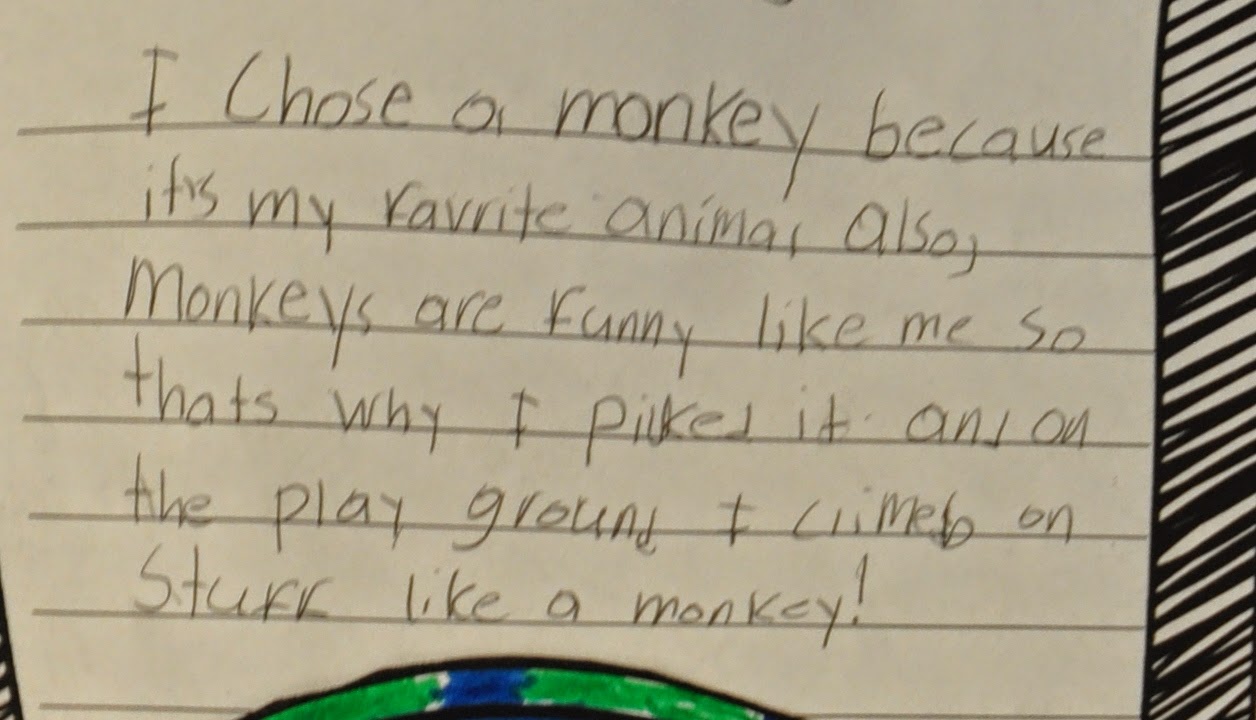 I Chose a monkey because
it's my favrite animal also,
Monkeys are funny like me so
thats why I picked it. and on
the play ground I climeb on
Stuff like a monkey!